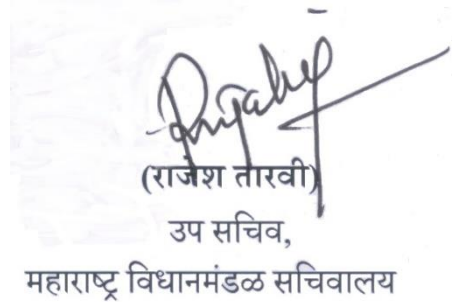 (राजेश तारवी)
उप सचिव,
महाराष्ट्र विधानमंडळ सचिवालय